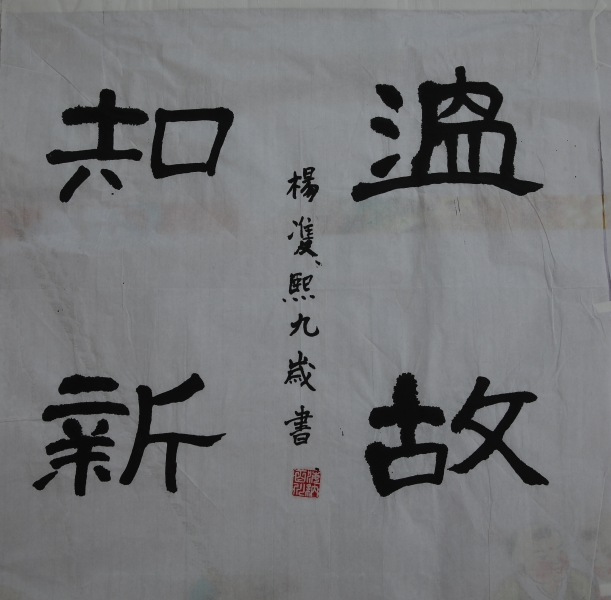 溫故
知新
楊凖熙九歲書